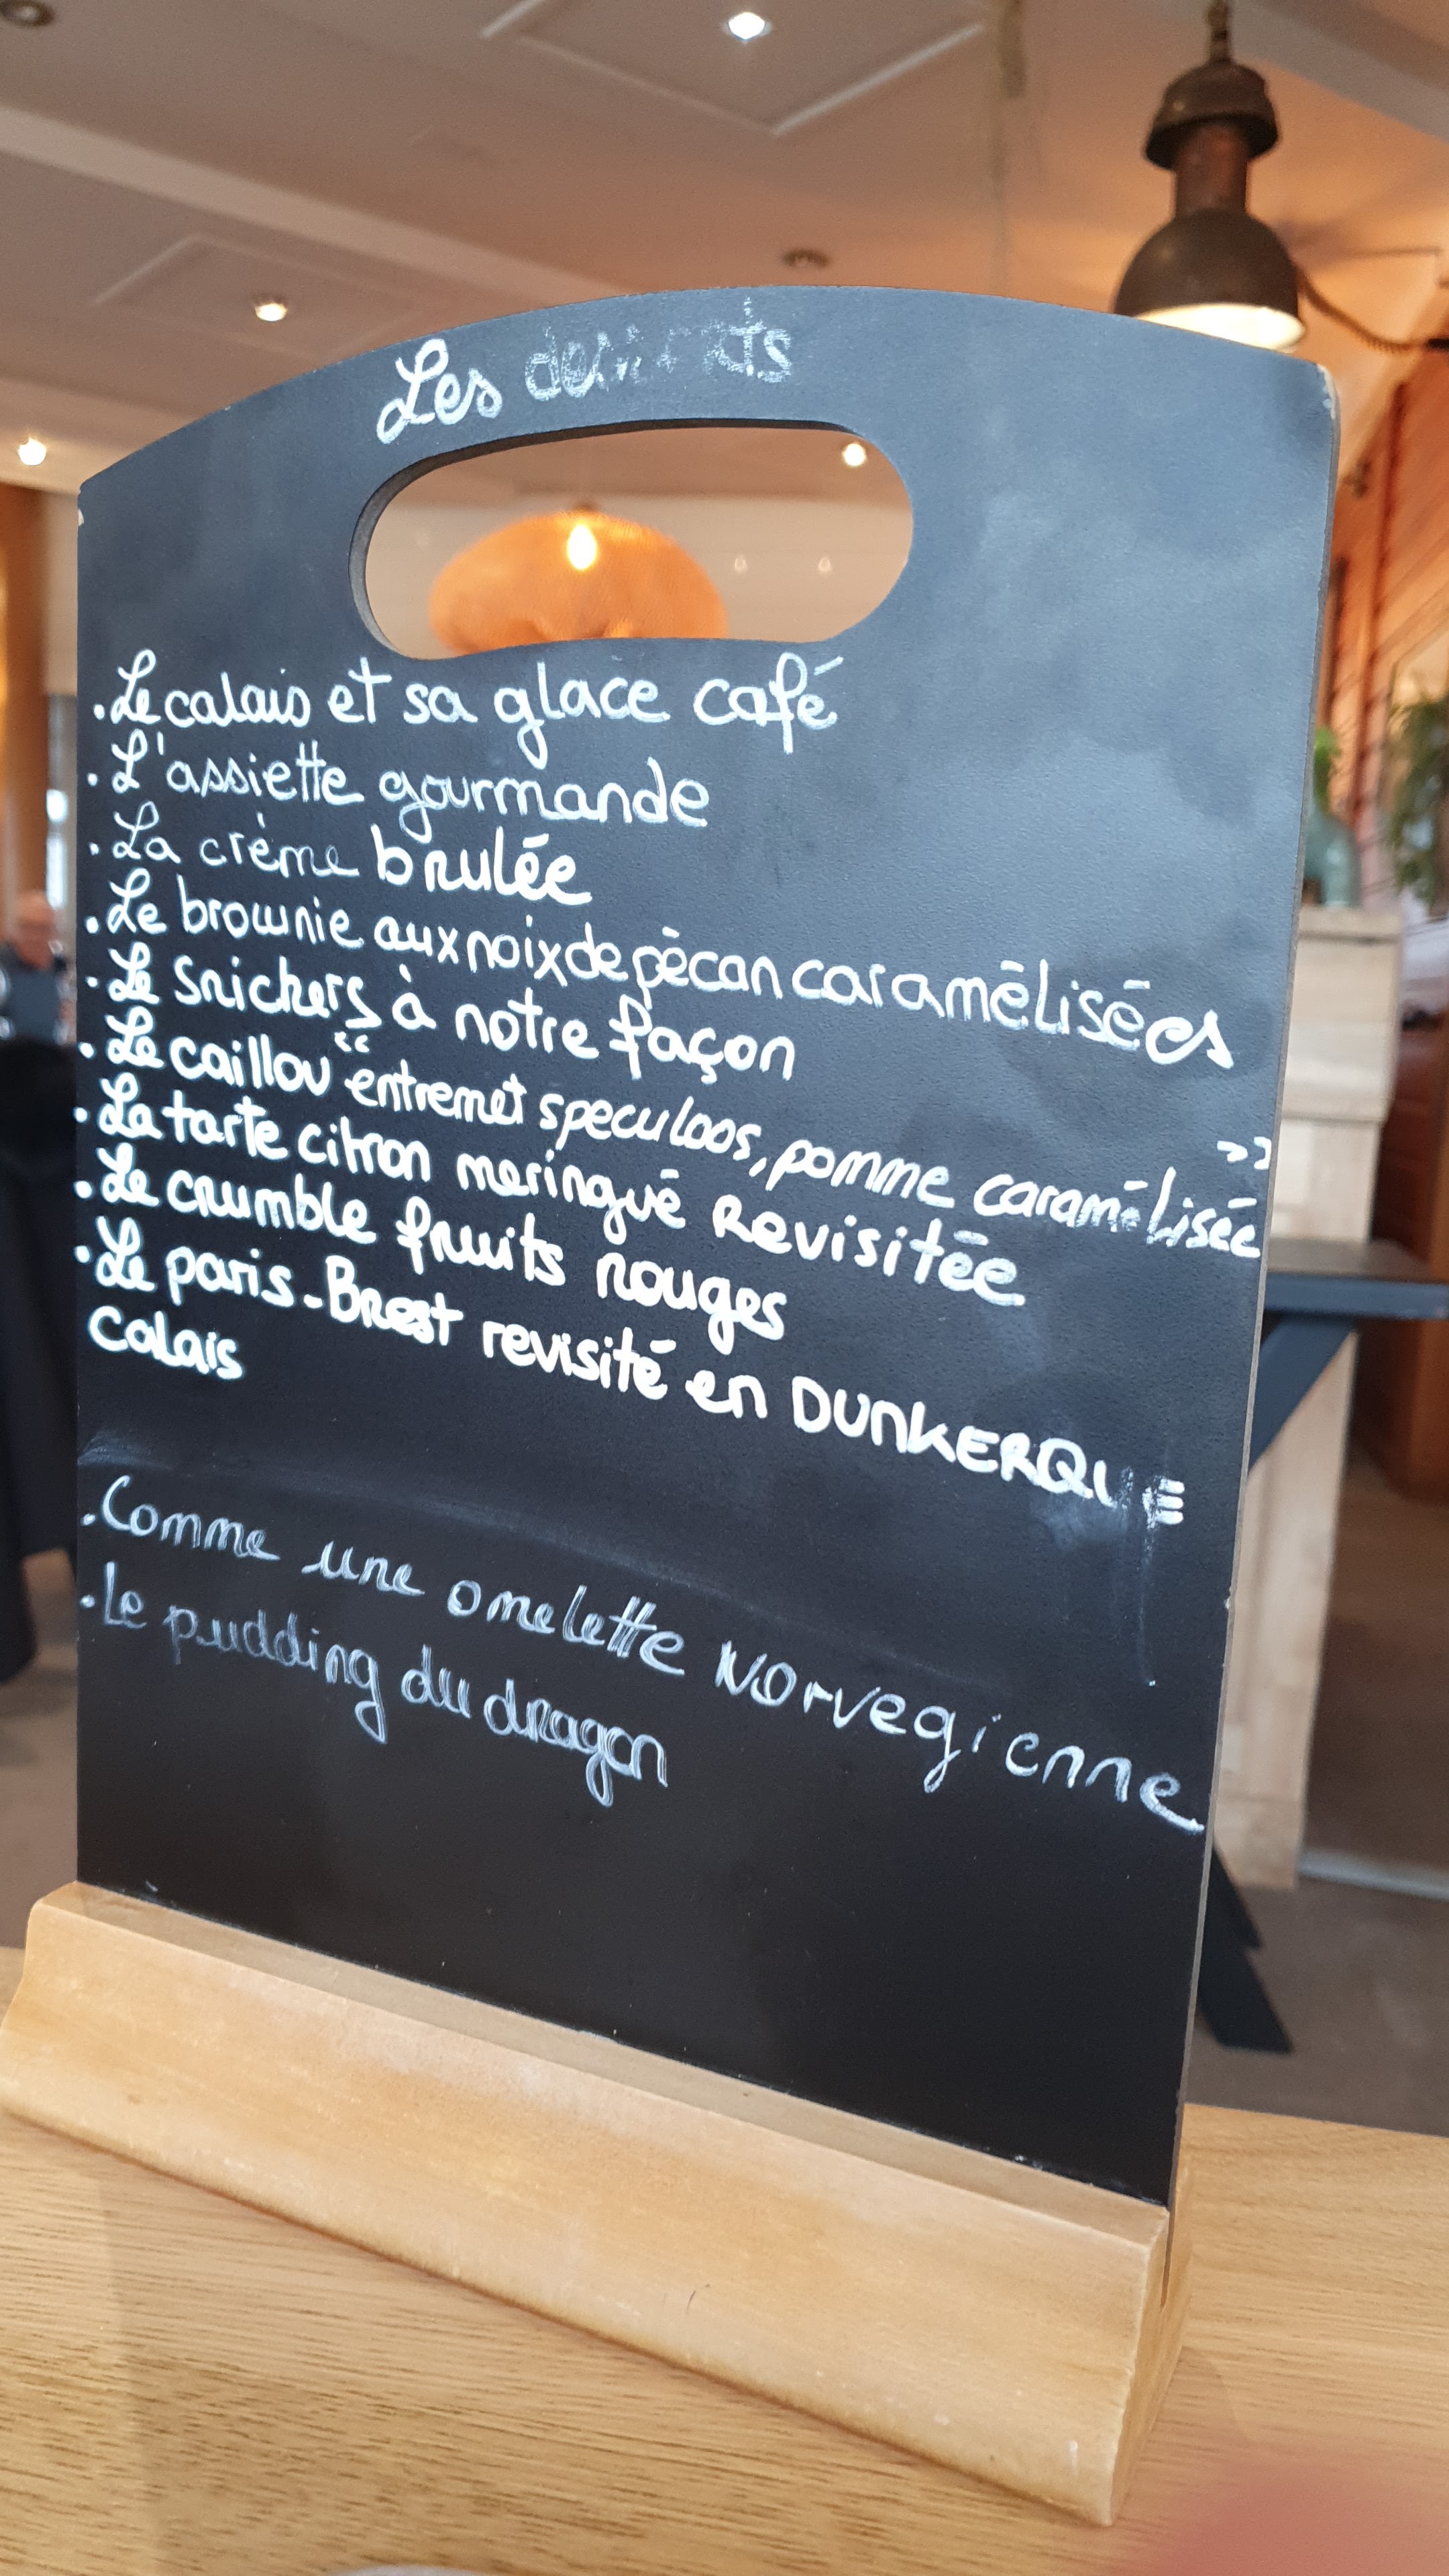 Les desserts
.Le calais et sa glace café
.L'assiette gourmande
.La crème brulée
.Le brownie aux noix de pècan caramēlisées
.Le snickers à notre façon
.Le caillou "entremet speculoos, pomme caramēlisée"
.La tarte citron meringué Revisitēe
.Le crumble fruits rouges
.Le paris-Brest revisité en DUNKERQUE
Calais
.Comme une omelette Norvegienne
.Le pudding du dragon